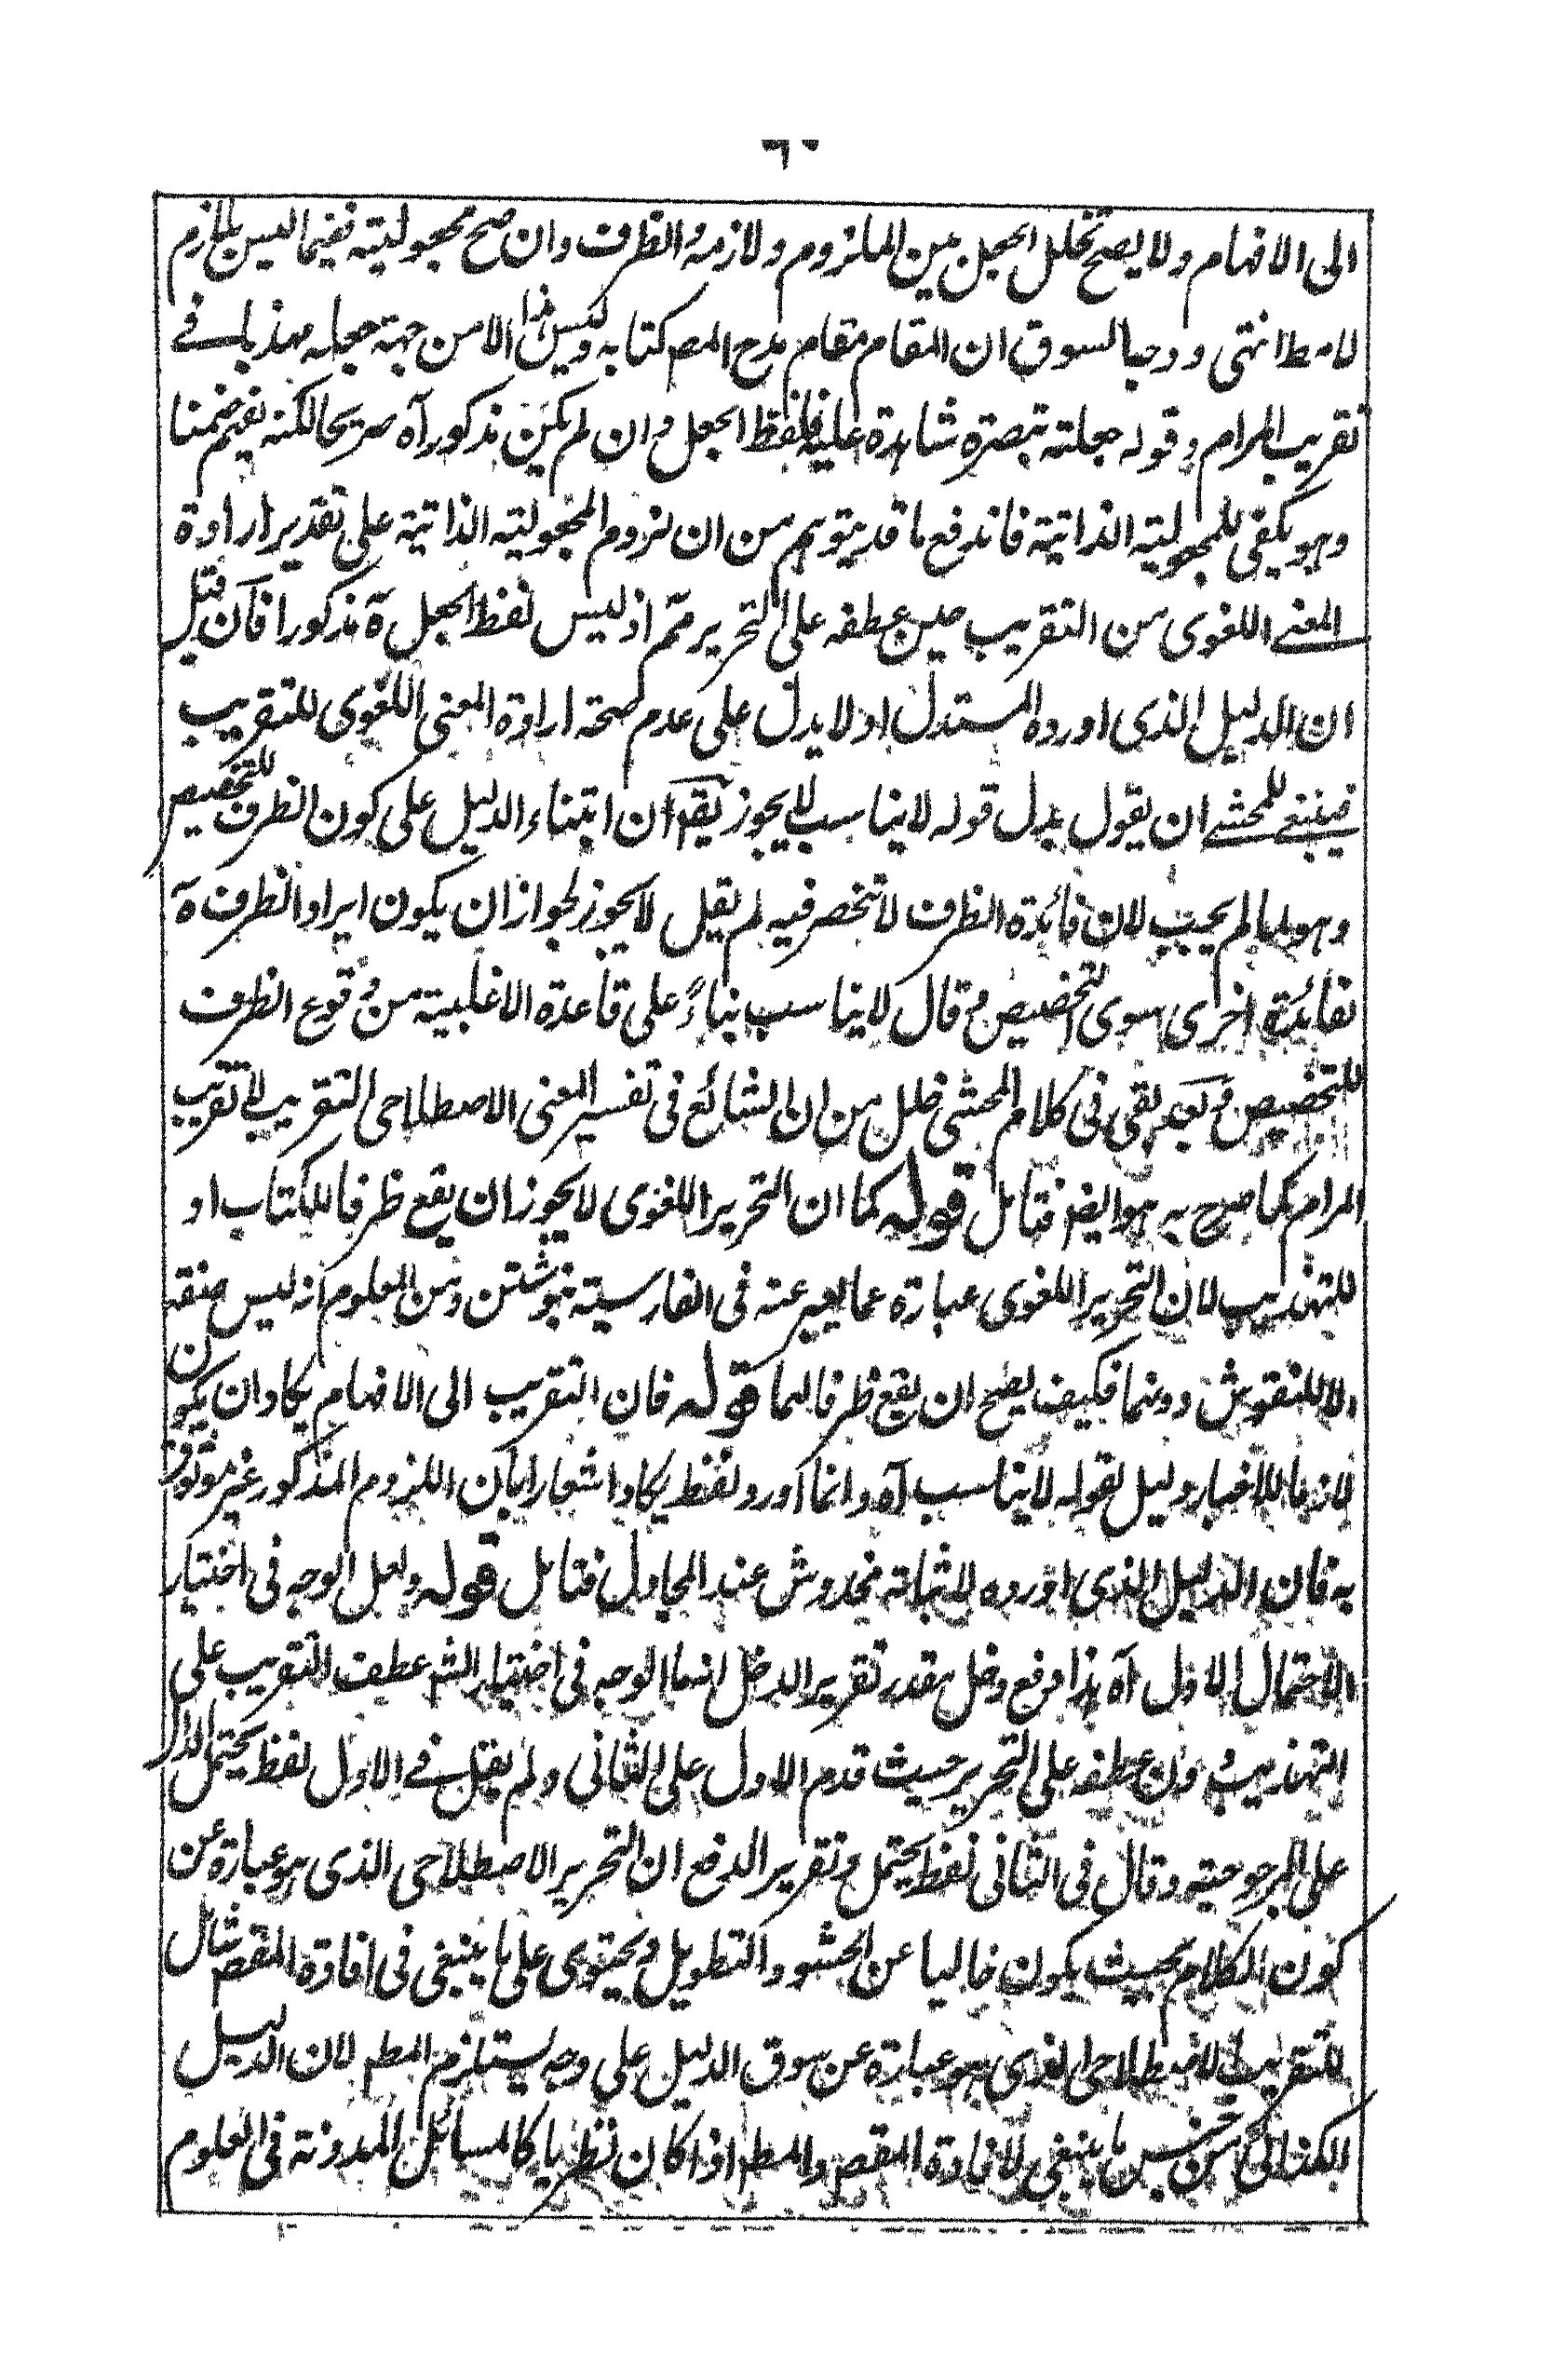 ٦٠
الى الافهام ولا يصح تخلل الجعل بين الملزوم ولازمه والظرف وان صح مجعوليته فيما ليس بلازم
لا مط انتهى ووجبا لسوق ان المقام مقام مدح المص كتابه وليس هذا الا من جهة جعله مهذبا في
تقريب المرام وقوله جعلته تبصرة شاهدة عليه فلفظ الجعل وان لم يكن مذكورا آه صريحا لكنه يفهم ضمنا
وهو يكفى للمجعولية الذاتية فاندفع ما قد يتوهم من ان لزوم المجعولية الذاتية على تقدير ارادة
المعنى اللغوى من التقريب حين عطفه على التحرير مم اذ ليس لفظ الجعل ة مذكورا فآن قيل
ان الدليل الذى اورده المستدل اولا يدل على عدم صحة ارادة المعنى اللغوى للتقريب
فينبغي للمحشے ان يقول بدل قوله لا يناسب لا يجوز يقم ان ابتناء الدليل على كون الظرف للتخصيص
وهو لما لم يجب لان فائدة الظرف لا تنحصر فيه لم يقل لا يجوز لجواز ان يكون ايراد الظرف ة
لفائدة اخرى سوى التخصيص وقال لا يناسب بناءً على قاعدة الاغلبية من وقوع الظرف
للتخصيص وبعد بقى فى كلام المحشى خلل من ان الشائع فى تفسير المعنى الاصطلاحى التقريب لا تقريب
المرام كما صرح به هو ايضا فتامل قوله كما ان التحرير اللغوى لا يجوز ان يقع ظرفا للكتاب او
للتهذيب لان التحرير اللغوى عبارة عما يعبر عنه فى الفارسية بنوشتن ومن المعلوم انه ليس صفة
الا للنقوش دونهما فكيف يصح ان يقع ظرفا لهما قوله فان التقريب الى الافهام يكاد ان يكون
لازما للاخبار دليل لقوله لا يناسب آه وانما اورد لفظ يكاد اشعارا بان اللزوم المذكور غير موثوق
به فان الدليل الذى اورده لاثباته مخدوش عند المجادل فتامل قوله ولعل الوجه فى اختيار
الاحتمال الاول آه هذا دفع دخل مقدر تقرير الدخل انه ما الوجه فى اختيار الش عطف التقريب على
التهذيب دون عطفه على التحرير حيث قدم الاول على الثانى ولم يقل فے الاول لفظ يحتمل الدال
على المرجوحية وقال فى الثانى لفظ يحتمل وتقرير الدفع ان التحرير الاصطلاحى الذى هو عبارة عن
كون الكلام بحيث يكون خاليا عن الحشو والتطويل ويحتوى على ما ينبغى فى افادة المقصد شامل
للتقريب الاصطلاحى الذى هو عبارة عن سوق الدليل على وجه يستلزم المطم لان الدليل
الكذائى من جنس ما ينبغى لافادة المقصد والمطم اذا كان نظريا كالمسائل المدونة فى العلوم